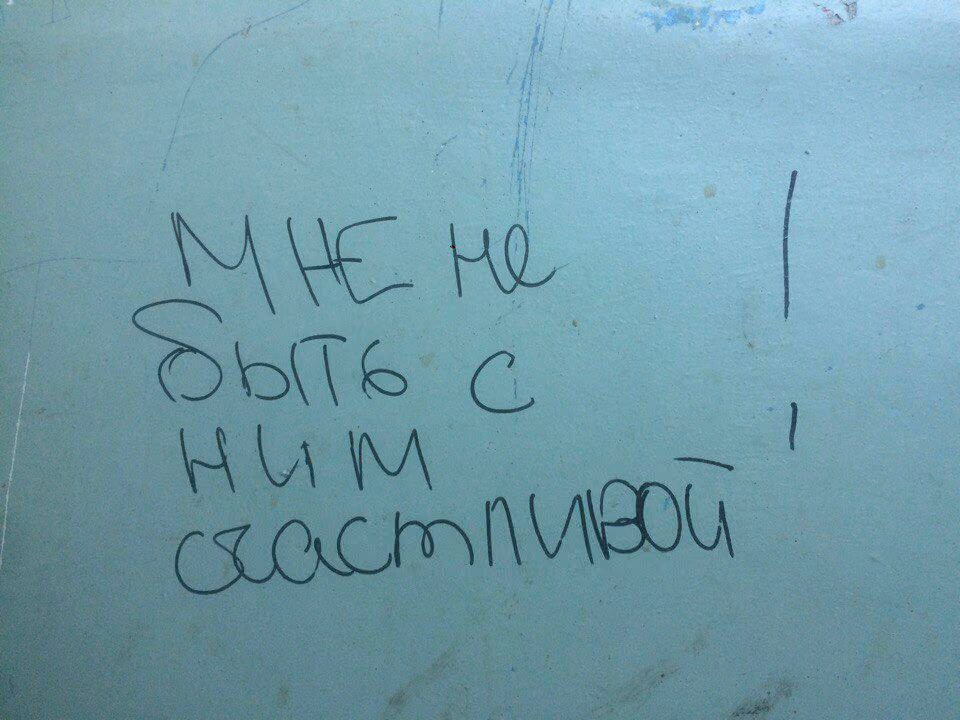 МНЕ не
быть с
ним
счастливой!